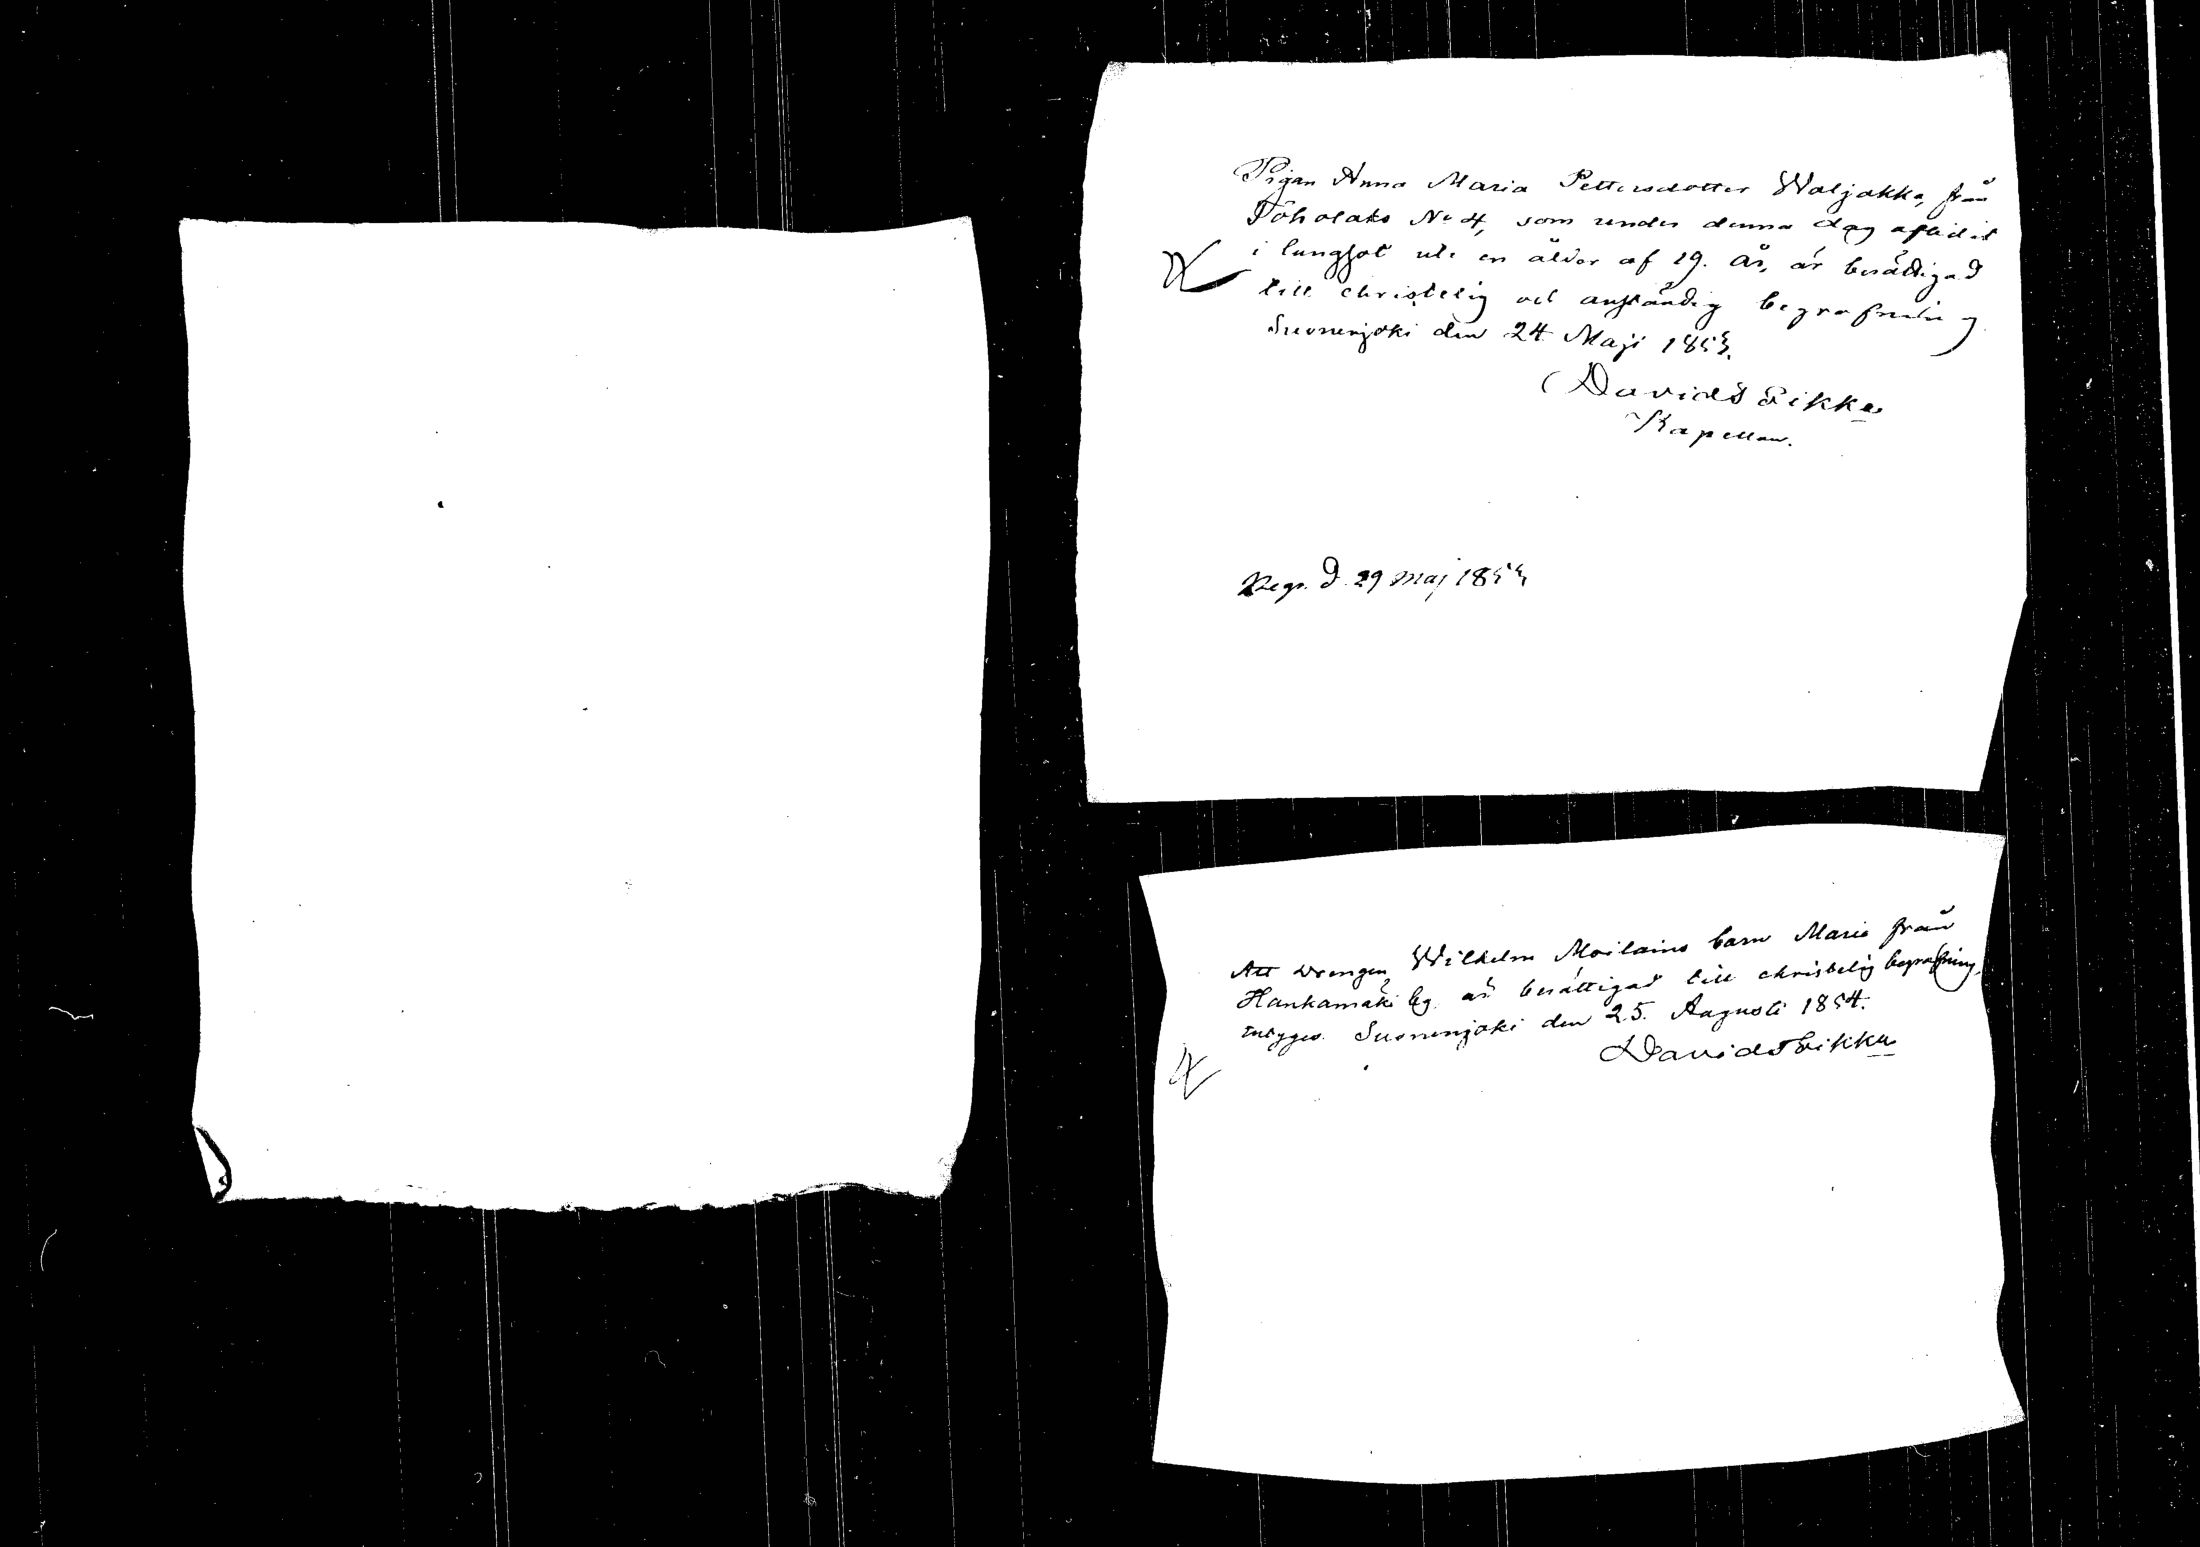 Pigan Anna Maria Pettersdotter Waljakka, från
Töholaks No 4, som under denna dag aflidit
i lungsot uti en ålder af 19. år, är berättigad
till christelig och anständig begrafning
Suonenjoki den 24 Maji 1853.
David
Kapellan.
Begr. d. 29 Maj 1853
Att drengen Wilhelm Moilains barn Maria från
Hankamäki by är berättigad till christelig begrafning,
intygges. Suonenjoki den 25. Augusti 1854.
David